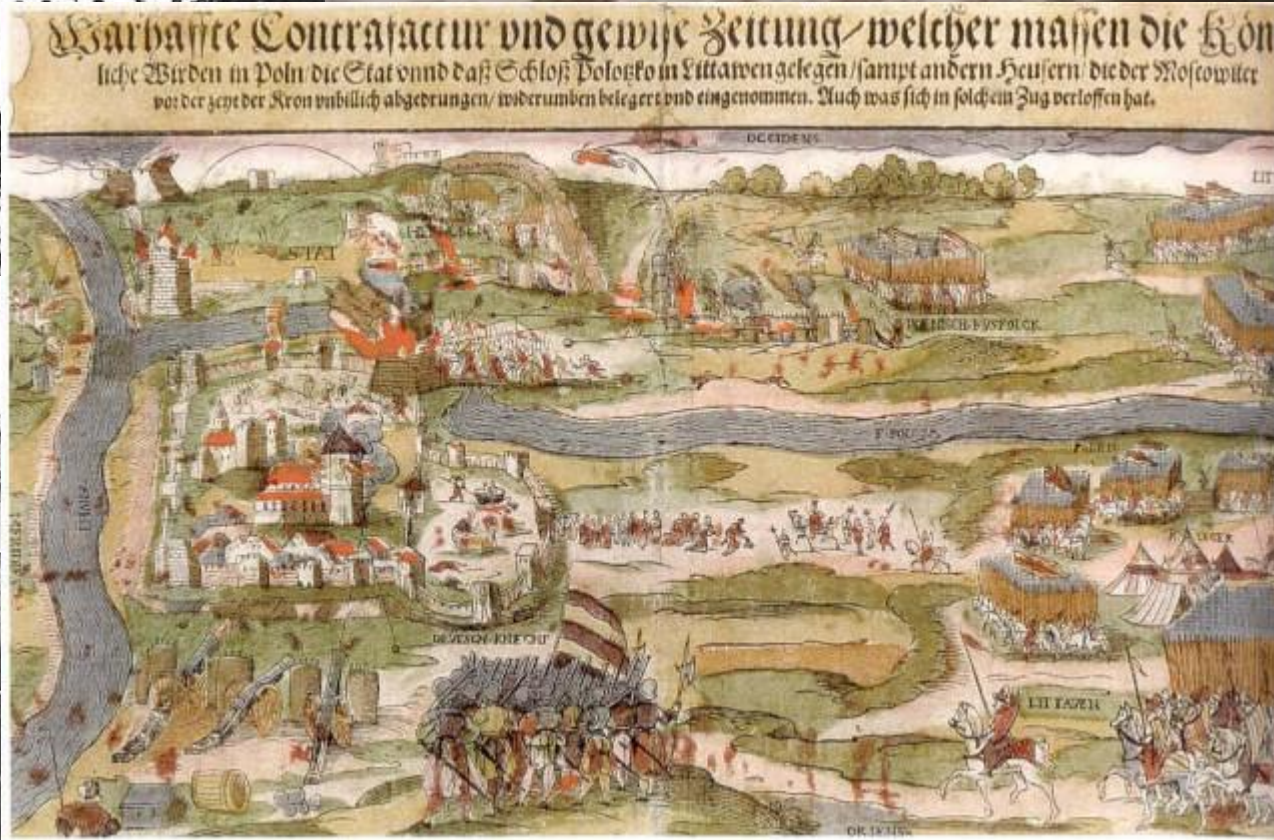 Warhaffte Contrafactur vnd gewise Zeitung/welcher massen die Kön
liche Wirden in Poln/die Stat vnnd daß Schloß Polotzko in Littawen gelegen/sampt andern Heusern/die der Moscowiter
vor der zeyt der Kron vnbillich abgedrungen/widerumben belegert vnd eingenommen. Auch was sich in solchem Zug verloffen hat.
OCCIDENS
LIT
STAT
F. POLOTA
LITTAVEN